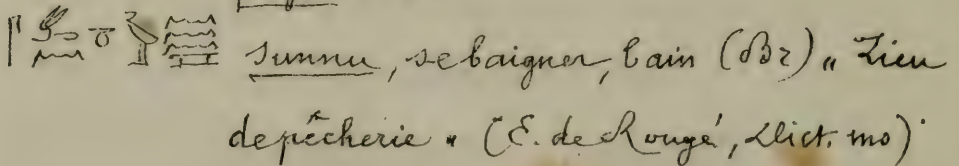 sunnu, se baigner, bain (Br) „ Lieu
de pêcherie „ (E. de Rougé, Dict. ms)